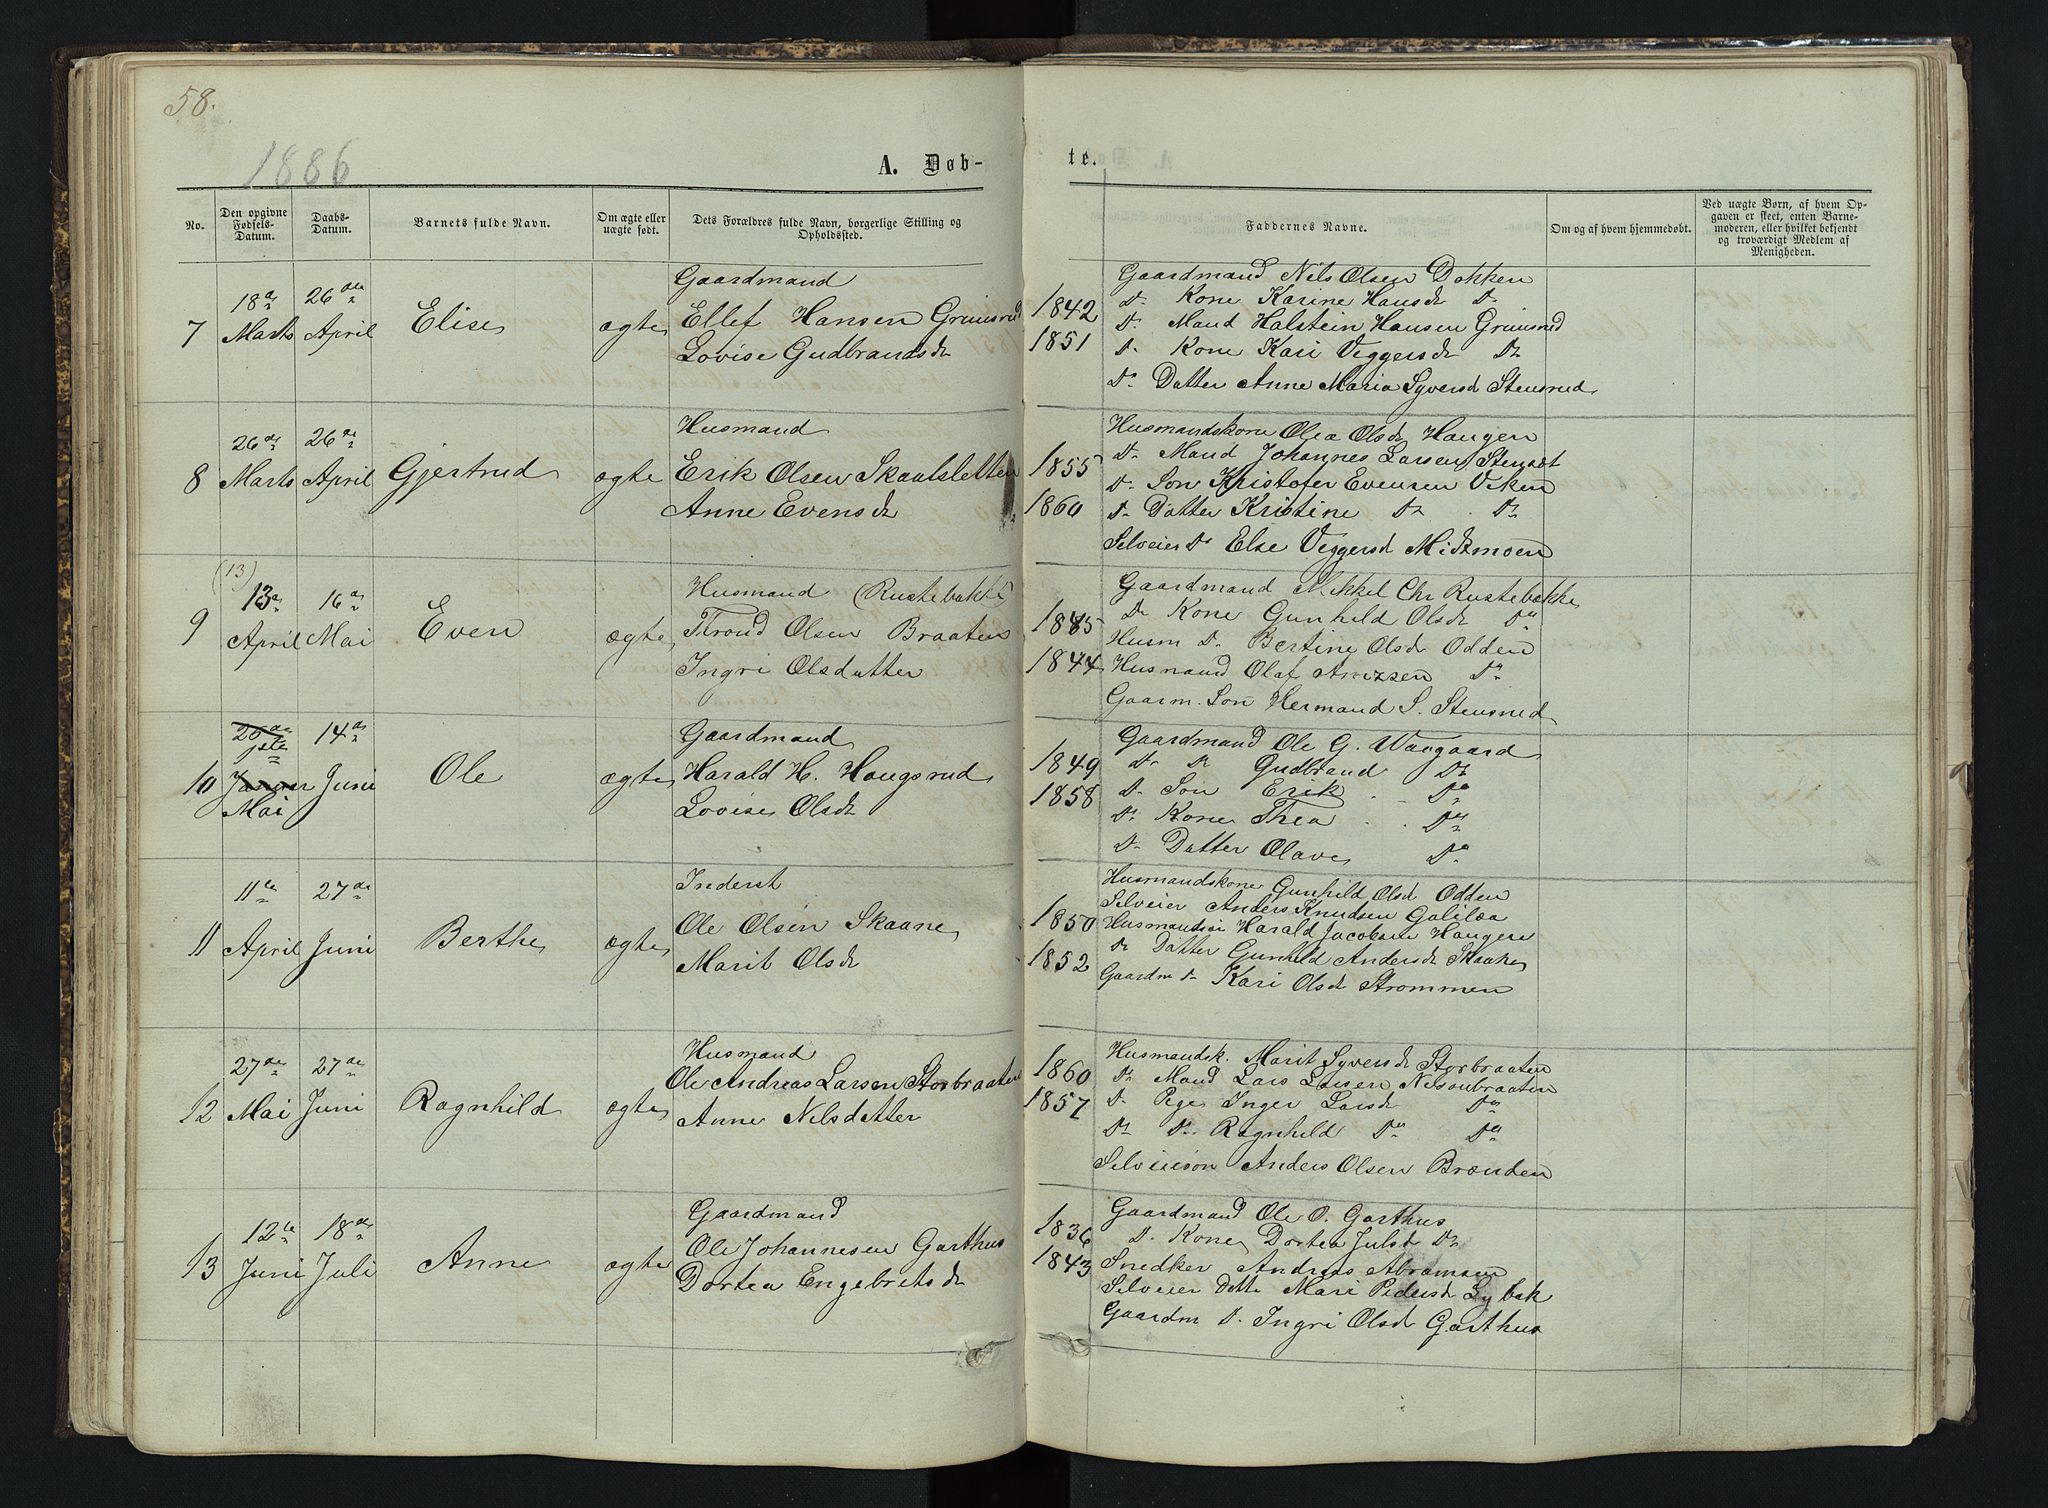 58.
1886
A. Døb-
te.
No.
Den opgivne Fødsels-Datum.
Daabs-Datum.
Barnets fulde Navn.
Om ægte eller uægte født.
Dets Forældres fulde Navn, borgerlige Stilling og Opholdssted.
Faddernes Navne.
Om og af hvem hjemmedøbt.
Ved uægte Børn, af hvem Opgaven er skeet, enten Barnemoderen, eller hvilket bekjendt og troværdigt Medlem af Menigheden.
7
18de Marts
26de April
Elise
ægte
Gaardmand
Ellef Hansen Grimsrud
Lovise Gudbrandsdr
1842
1851
Gaardmand Nils Olsen Dokken
Do Kone Karine Hansdr Do
Do Mand Halstein Hansen Grimsrud
Do Kone Kari Viggersdr Do
Do Datter Anne Maria Syversd Stensrud
8
26de Marts
26de April
Gjertrud
ægte
Husmand
Erik Olsen Skaatsletten
Anne Evensdr
1855
1860
Husmandskone Olea Olsdr Haugen
Do Mand Johannes Larsen
Do Søn Kristofer Evensen Viken
Do Datter Kristine Do Do
Selveier Do Else Viggersd Midtmoen
9
(13)
13de April
16de Mai
Even
ægte
Husmand (Rustebakke)
Trond Olsen Braaten
Ingri Olsdatter
1845
1844
Gaardmand Mikkel Chr Rustebakke
Do Kone Gunhild Olsdr Do
Husm Do Bertine Olsdr Odden
Husmand Olaf Do
Gaarm. Søn Hermand S. Stensrud
10
20de
1ste
Januar
Mai
14de Juni
Ole
ægte
Gaardmand
Harald H. Haugsrud
Lovise Olsdr
1849
1858
Gaardmand Ole G. Waagaard
Do Do Gudbrand Do
Do Søn Erik Do
Do Kone Thea Do
Do Datter Olave Do
11
11te April
27de Juni
Berthe
ægte
Inderst
Ole Olsen Skaane
Marit Olsdr
1850
1852
Husmandskone Gunhild Olsd Odden
Selveier Anders Knudsen Galilæa
Harald Jacobsen Haugen
Do Datter Gunhild Andersdr
Gaardm Do Kari Olsdr Strømmen
12
27de Mai
27de Juni
Ragnhild
ægte
Husmand
Ole Andreas Larsen Storbraaten
Anne Nilsdatter
1860
1857
Husmandsk. Marit Syversdr Storbraaten
Do Mand Lars Larsen Nilsonbraaten
Do Pige Inger Larsdr Do
Do Do Ragnhild Do Do
Selveiersøn Anders Olsen Brænden
13
12te Juni
18de Juli
Anne
ægte
Gaardmand
Ole Johannesen Garthus
Dortea Engebretsdr
1836
1843
Gaardmand Ole O. Garthus
Do Kone Dortea Julsdr Do
Snedker Andreas Abramsen
Selveier Datte Mari Pedersd Lybæk
Gaardm Do Ingri Olsdr Garthus